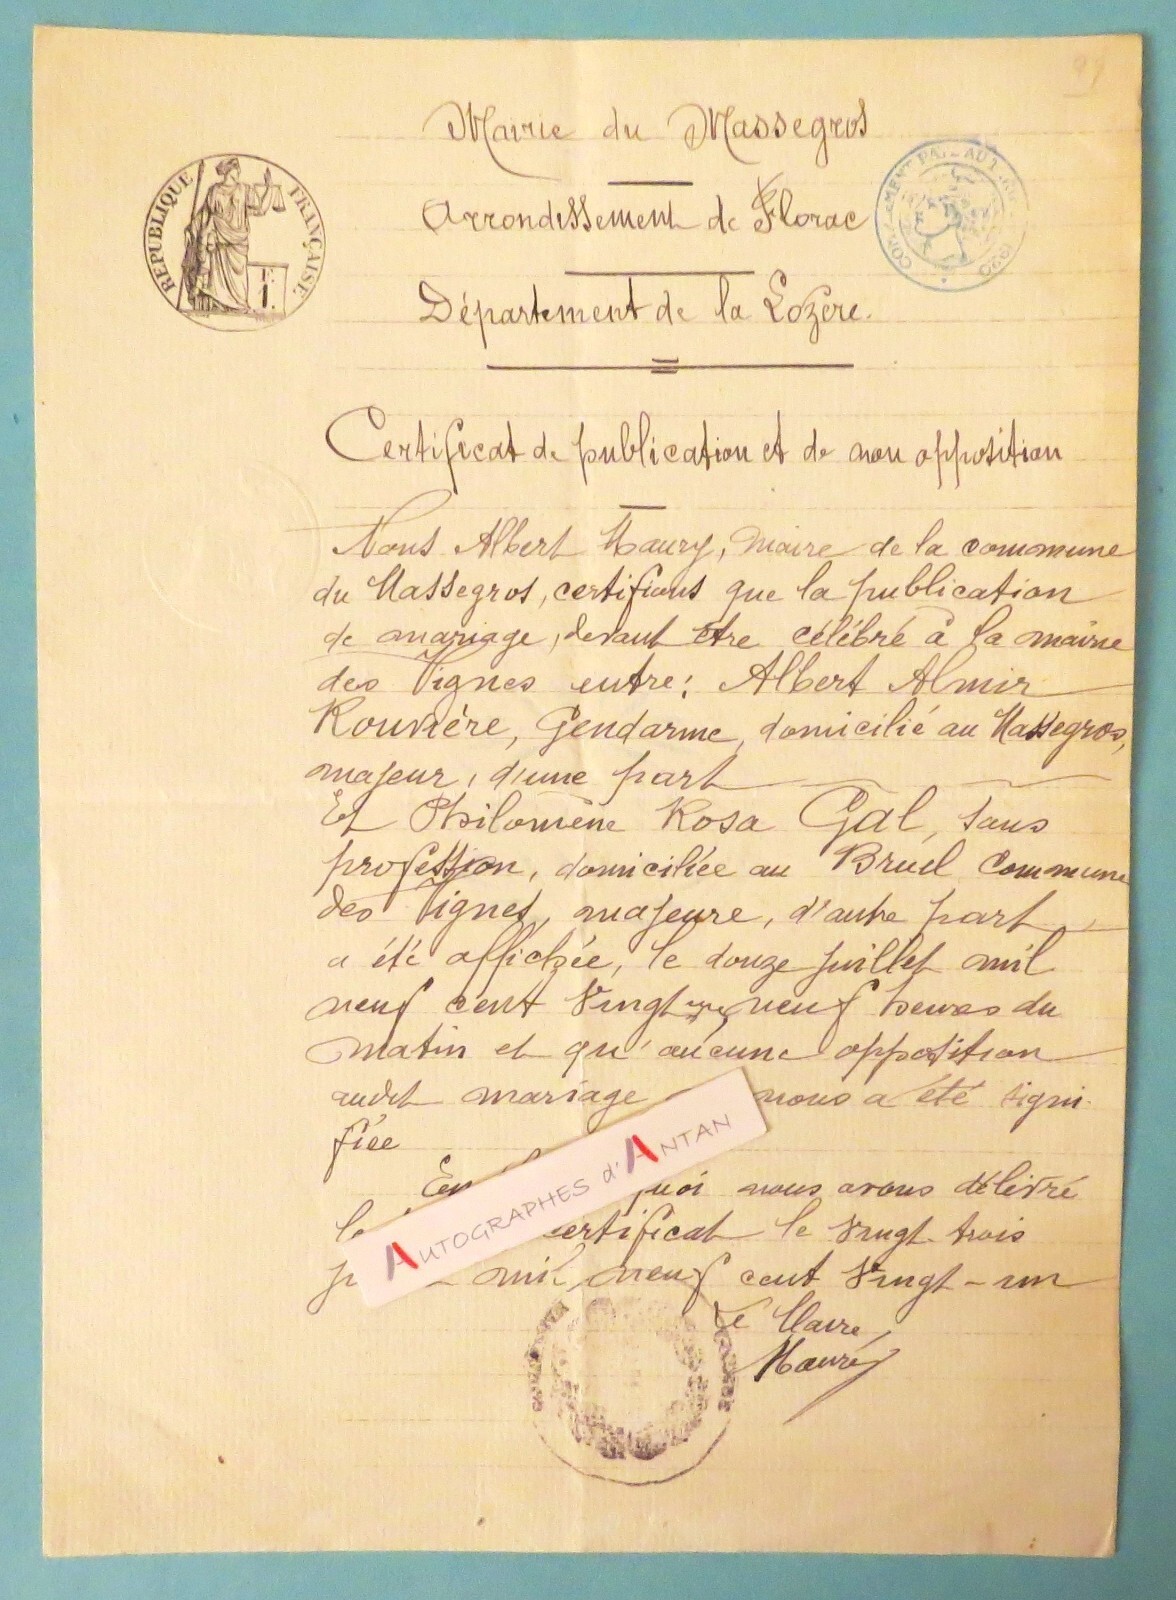 Mairie du Massegros
Arrondissement de Florac
Département de la Lozère.
RÉPUBLIQUE FRANÇAISE
1F.
Certificat de publication et de non opposition
Nous Albert Maury, Maire de la commune
du Massegros, certifions que la publication
de mariage, devant être célébré à la mairie
des Vignes entre: Albert Almir
Rouvière, Gendarme, domicilié au Massegros,
majeur, d'une part
Et Philomène Rosa Gal, sans
profession, domiciliée au Bruel commune
des Vignes, majeure, d'autre part
a été affichée, le douze juillet mil
neuf cent Vingt neuf heures du
matin et qu'aucune opposition
audit mariage nous a été signi-
fiée
En quoi nous avons délivré
le certificat le Vingt-trois
mil neuf cent Vingt-un
Le Maire,
Maury
AUTOGRAPHES d'ANTAN